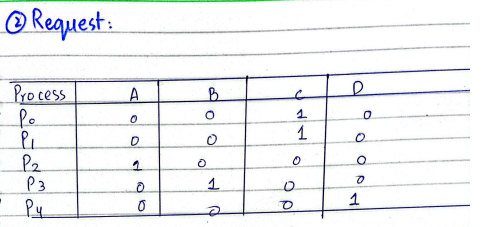 ② Request:
Process A B C D
P0 0 0 1 0
P1 0 0 1 0
P2 1 0 0 0
P3 0 1 0 0
P4 0 0 0 1